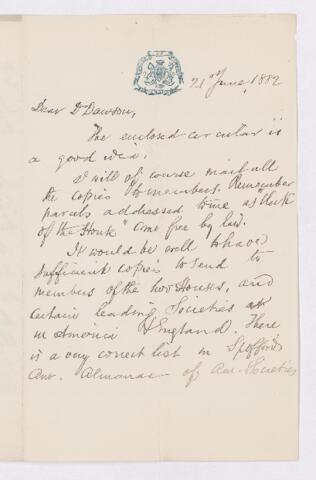 21st June, 1882
Dear Dr Dawson,
The enclosed circular is
a good idea.
I will of course mail all
the copies to members. Remember
parcels addressed to me as "Clerk
of the House" come free by law.
It would be well to have
sufficient copies to send to
members of the two Houses, and
certain leading Societies
in America & England. There
is a very correct list in Spofford's
Am. Almanac of Am. Societies